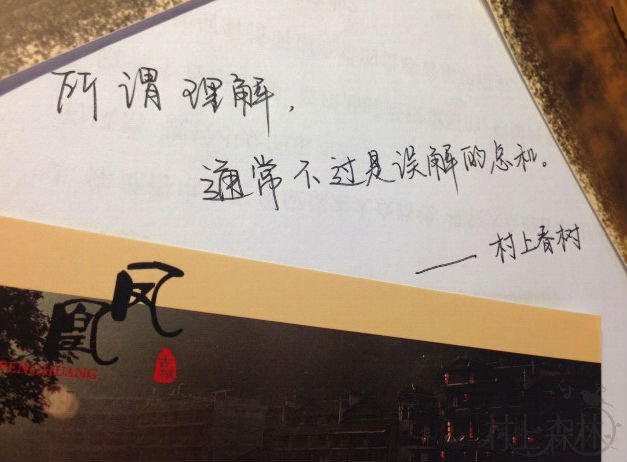 所谓理解，
通常不过是误解的总和。
——村上春树
凤凰
FENGHUANG
村上森林